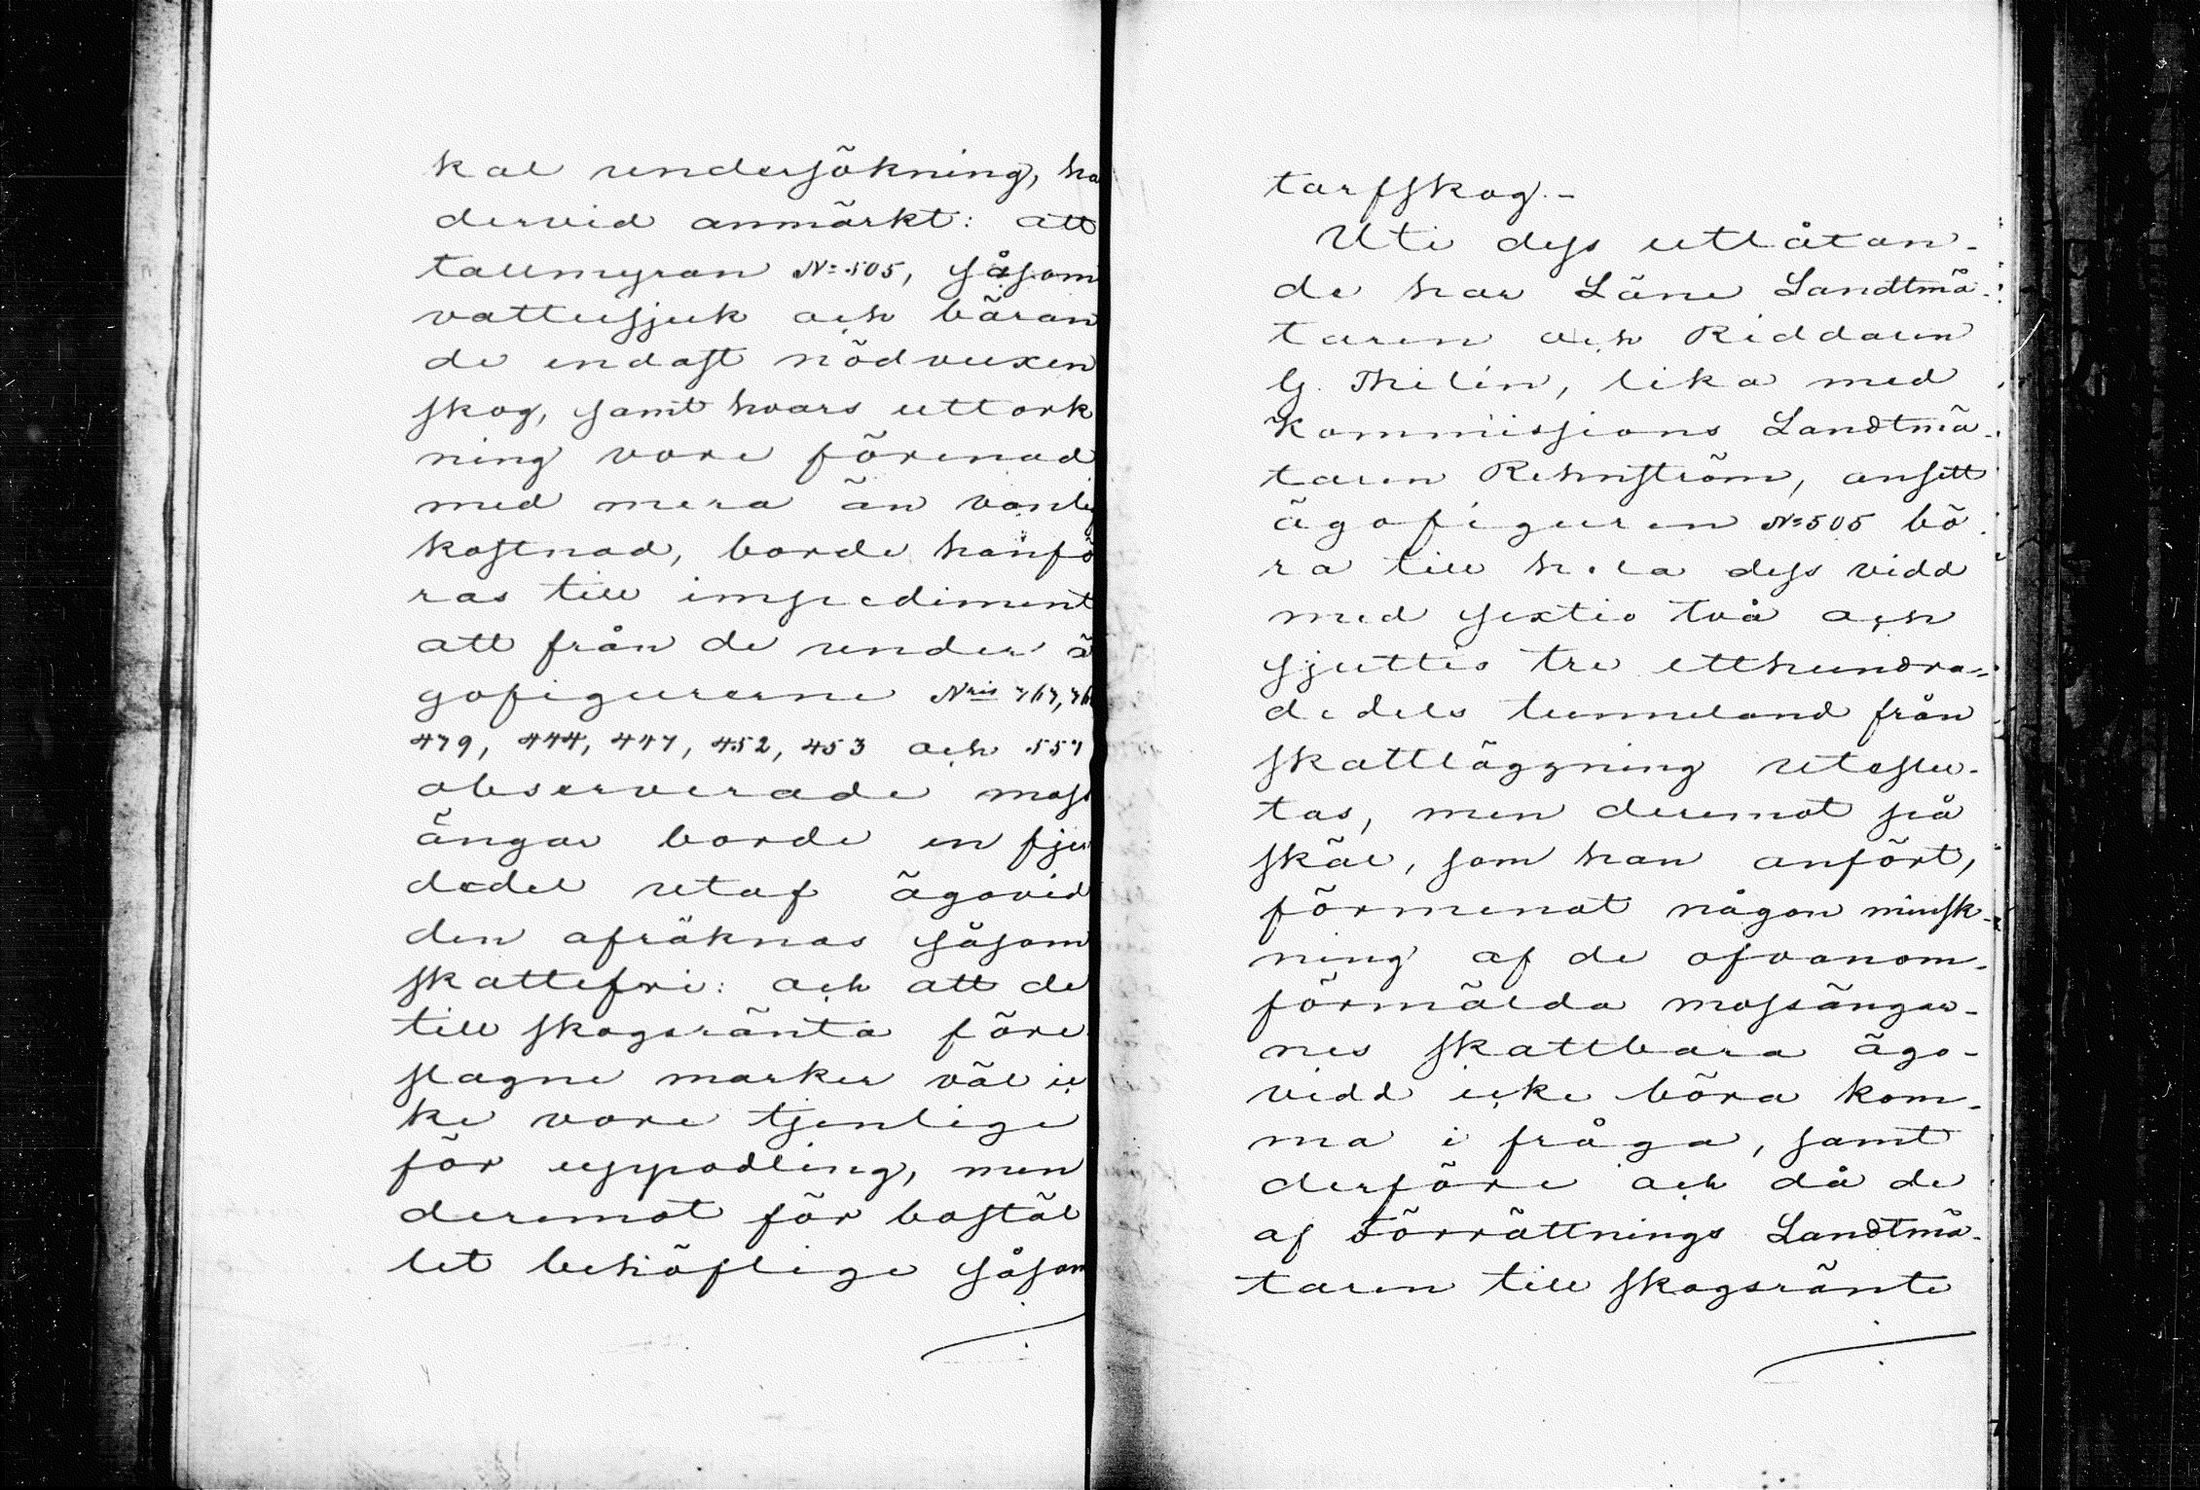 kal undersökning, ha
dervid anmärkt: att
tallmyran N:o 505, såsom
vattusjuk och bäran
de endast nödvuxen
skog, samt hvars uttork
ning vore förenad
med mera än vanlig
kostnad, borde hänfö
ras till impediment
att från de under ä
gofigurerne Nris 767, 76
479, 444, 447, 452, 453 och 557
observerade moss
ängar borde en fjer
dedel utaf ägovid
den afräknas såsom
skattefri: och att de
till skogsränta före
slagne marker väl ic
ke vore tjenlige
för uppodling, men
deremot för bostäl
let behöflige såsom
tarfskog.-
Uti dess utlåtan-
de har Läne Landtmä-
taren och Riddaren
G. Thilén, lika med
Kommissions Landtmä-
taren Rehnström, ansett
ägofiguren N:o 505 bö
ra till hela dess vidd
med sextio två och
sjuttio tre etthundra-
dedels tunneland från
skattläggning uteslu-
tas, men deremot på
skäl, som han anfört,
förmenat någon minsk-
ning af de ofvanom-
förmälda mossängar-
nes skattbara ägo-
vidd icke böra kom-
ma i fråga, samt
derföre och då de
af Förrättnings Landtmä-
taren till skogsränte